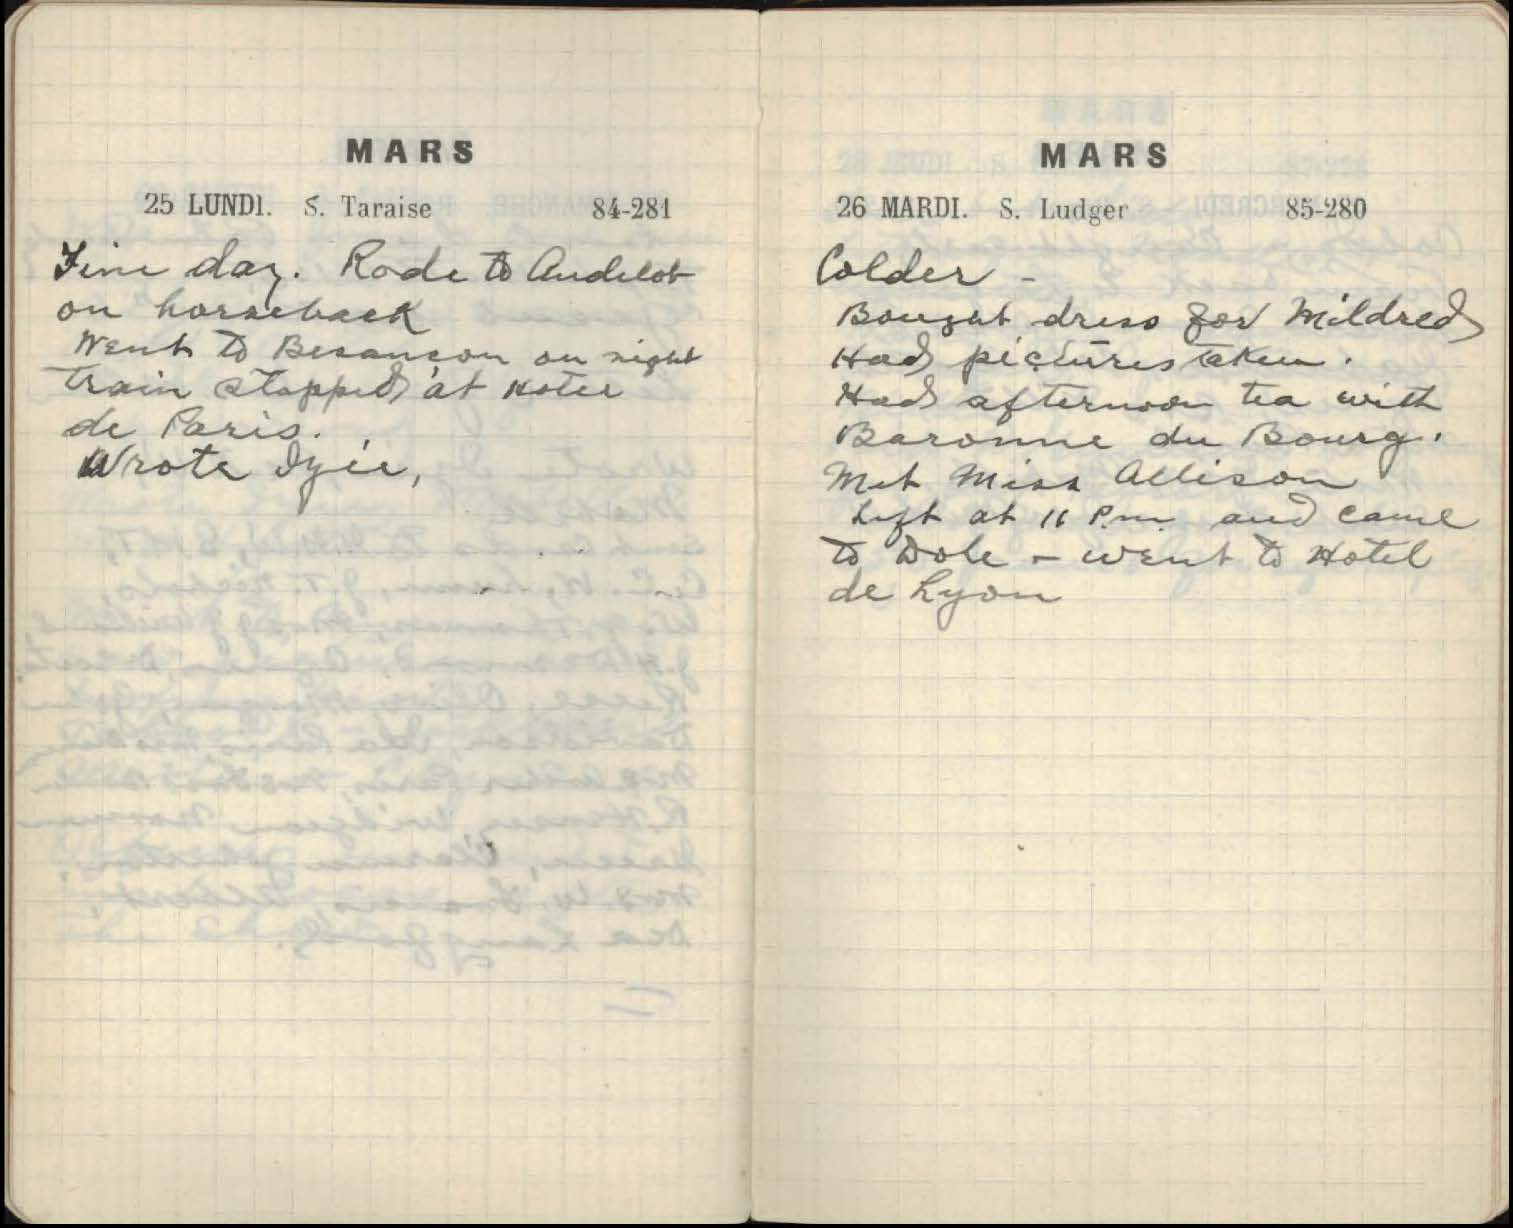 MARS
25 LUNDI. S. Taraise 84-281
Fine day. Rode to Andelot
on horseback
Went to Besancon on night
train stopped at Hotel
de Paris.
Wrote
MARS
26 MARDI. S. Ludger 85-280
Colder -
Bought dress for Mildred
Had pictures taken.
Had afternoon tea with
Baronne du Bourg.
Met Miss Allison
Left at 11 P.m. and came
to Dole - went to Hotel
de Lyon